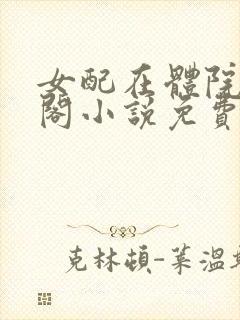 女配在體院
閣小說免費
克林頓-萊溫